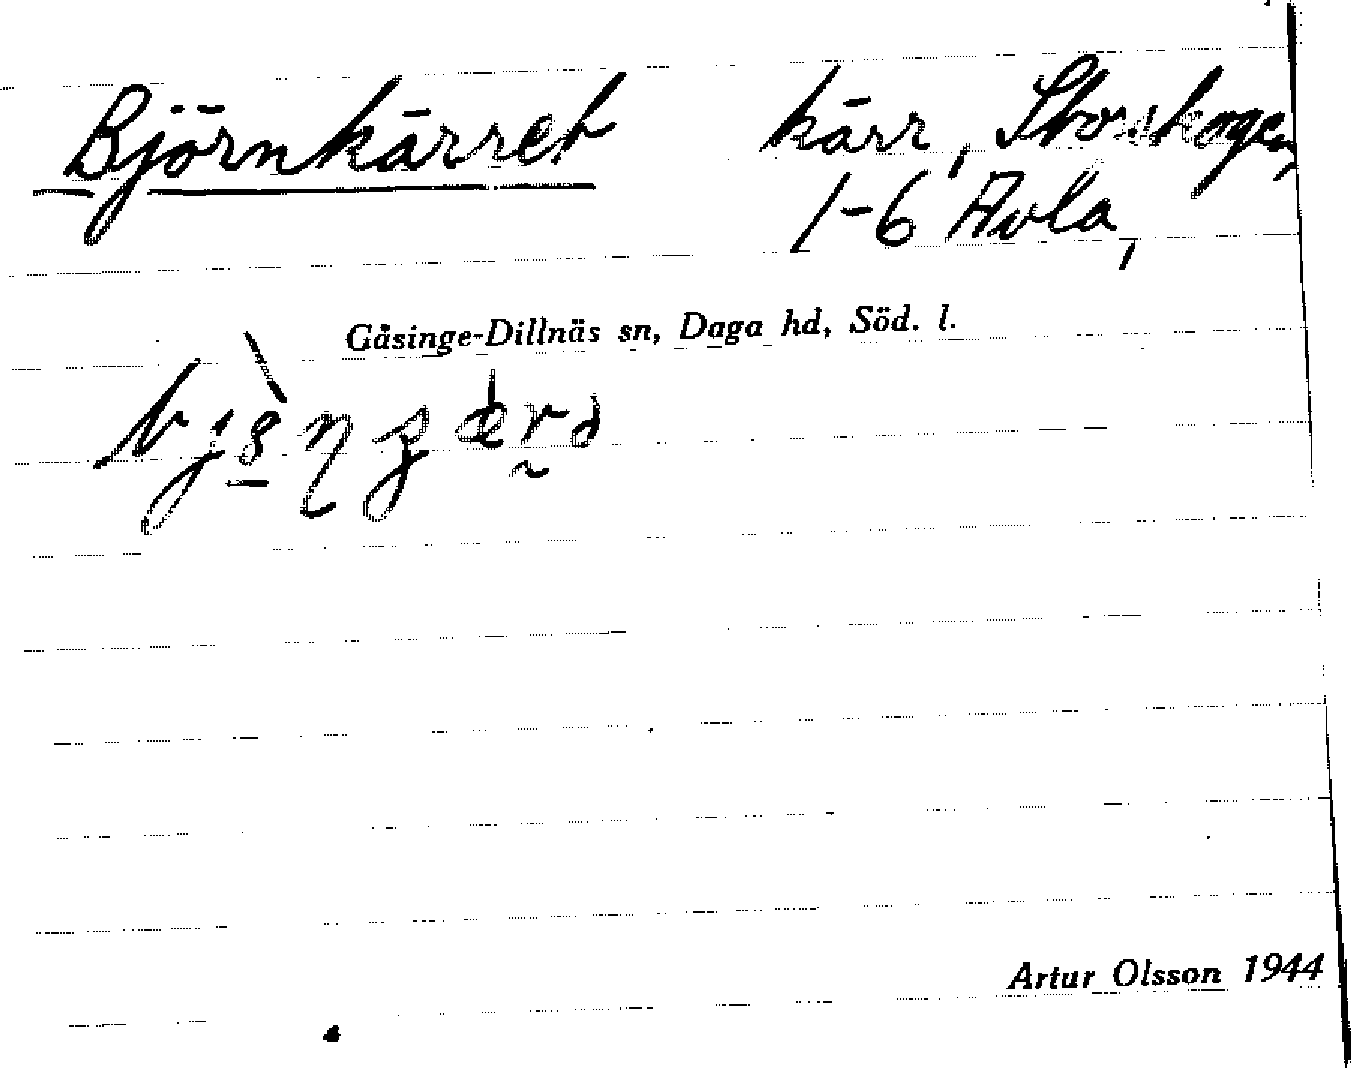 Björnkärret kärr, Storskogen,
1-6 Åvla,
Gåsinge-Dillnäs sn, Daga hd, Söd. l.
Artur Olsson 1944